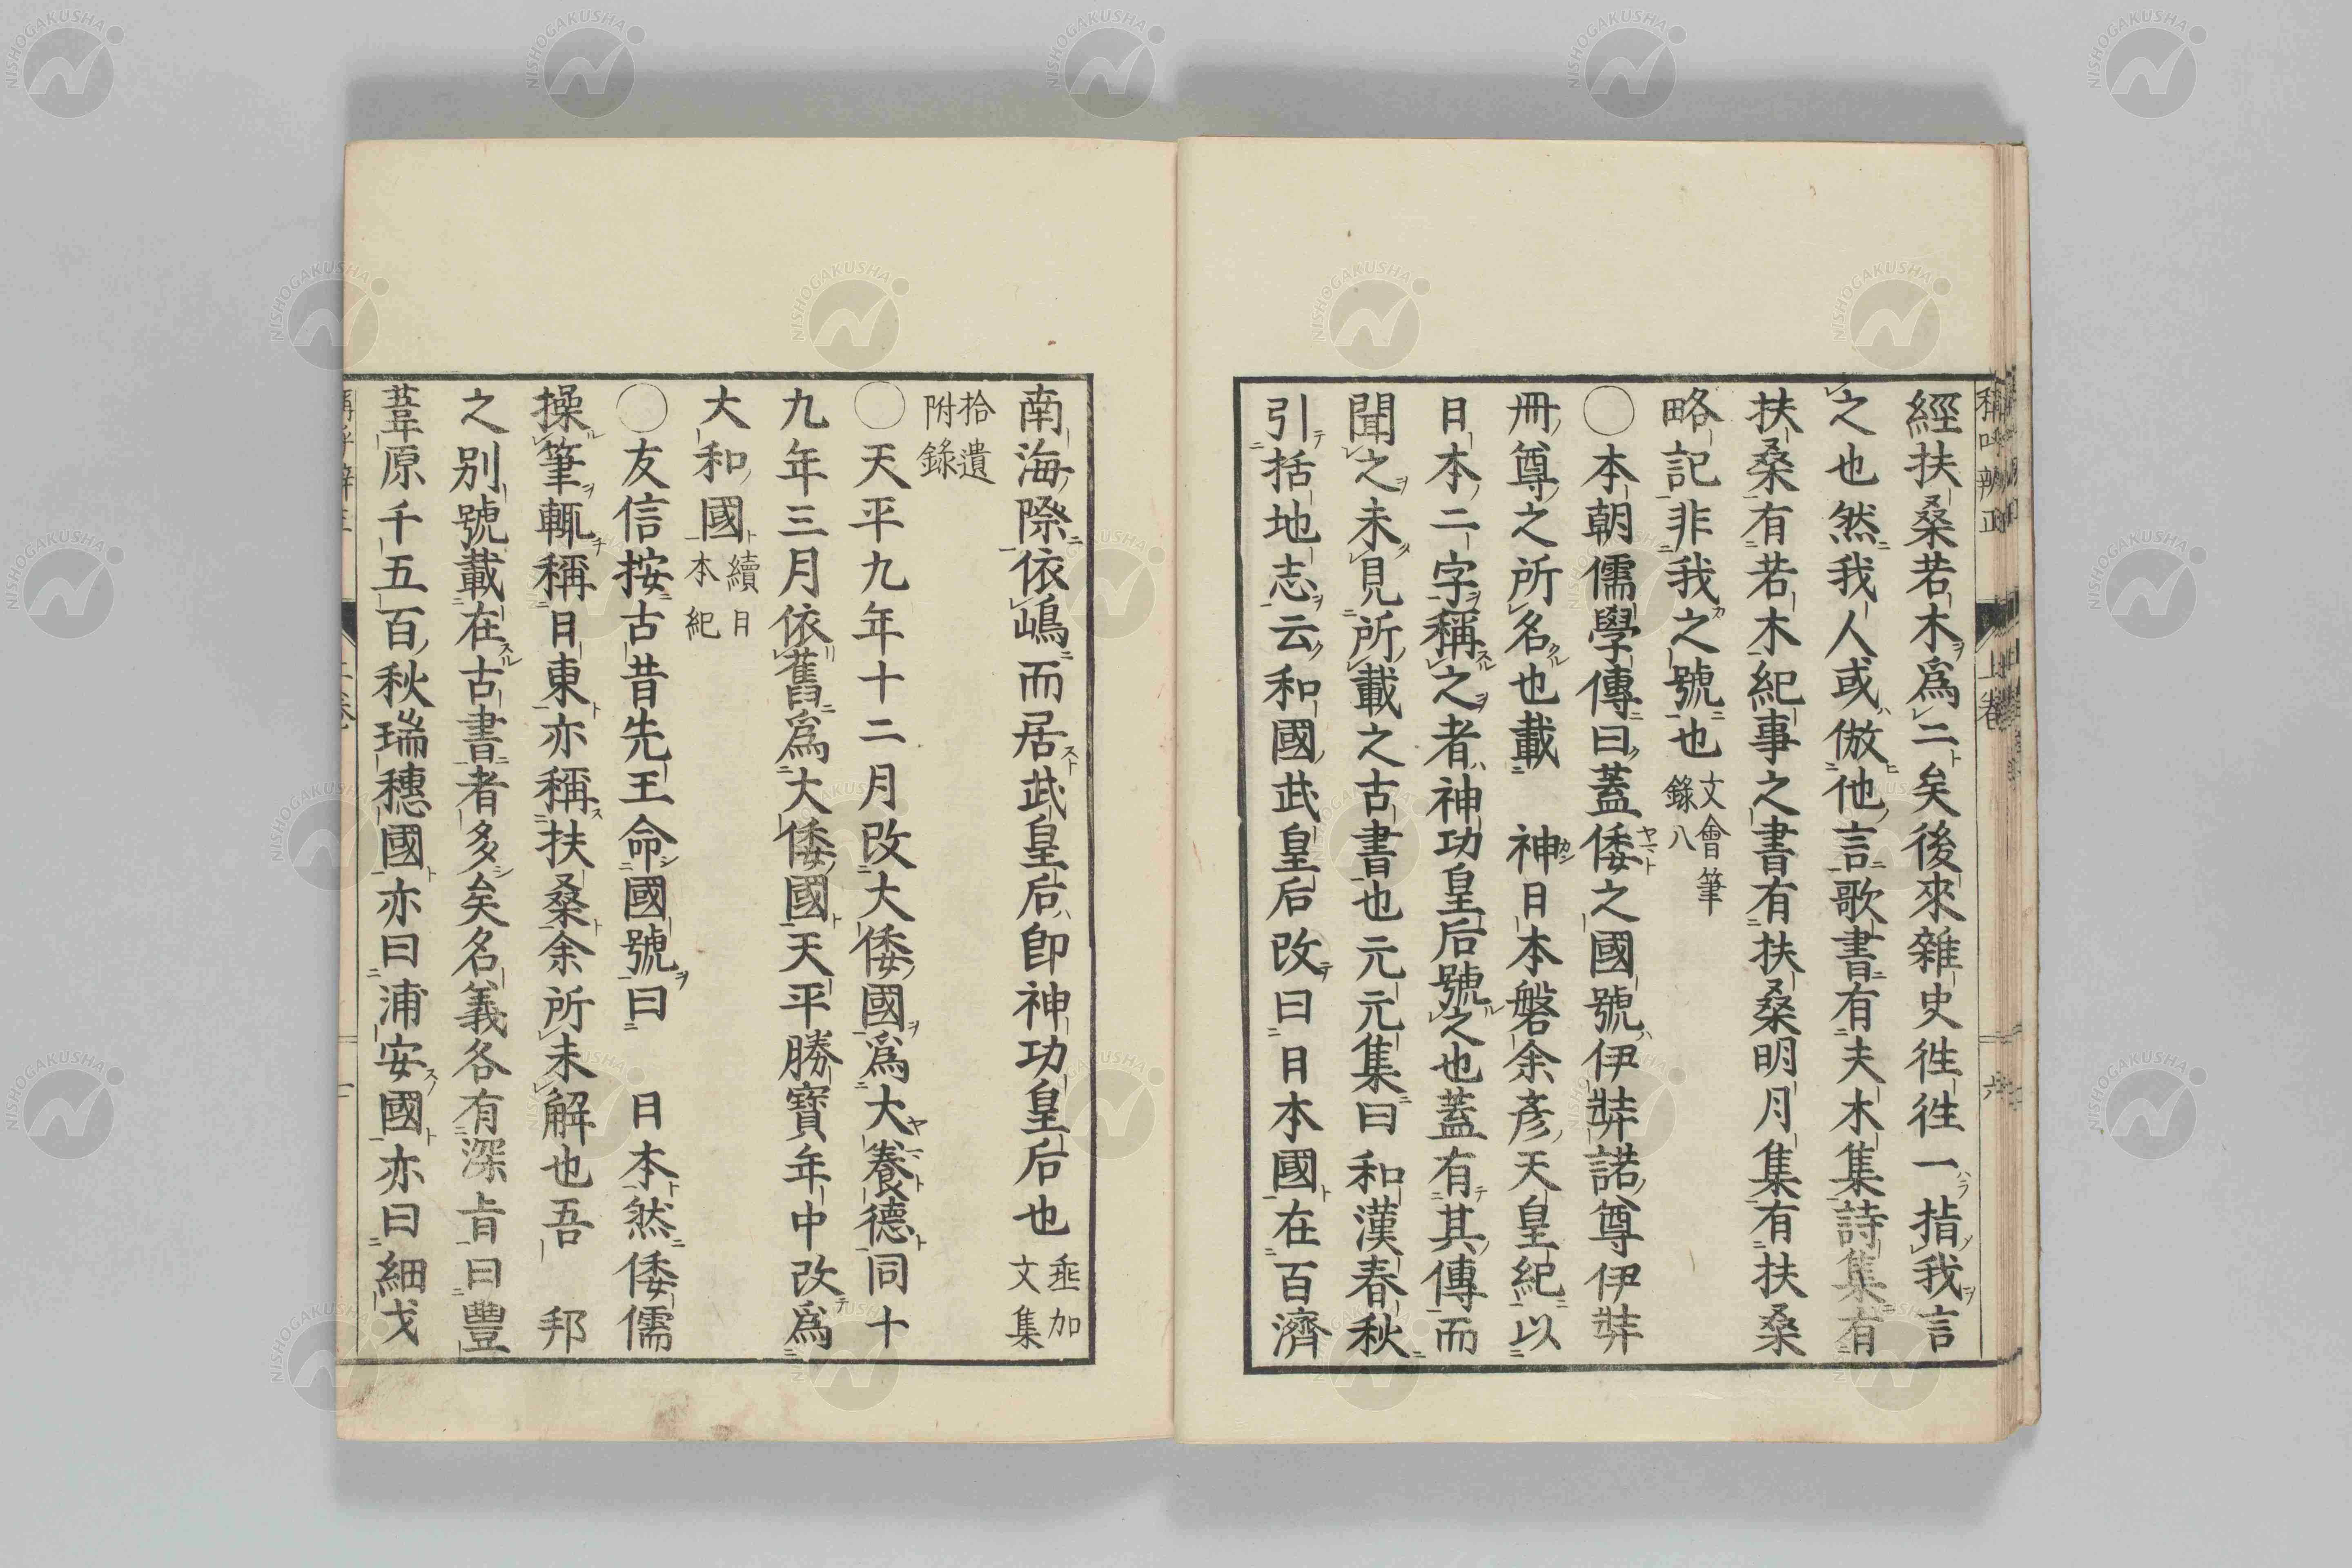 經扶桑若木爲二矣後來雜史徃徃一指我言
之也然我人或倣他言歌書有夫木集詩集有
扶桑有若木紀事之書有扶桑明月集有扶桑
略記非我之號也文會筆錄八
○本朝儒學傳曰蓋倭之國號伊弉諾尊伊弉
冊尊之所名也載 神日本磐余彥天皇紀以
日本二字稱之者神功皇后號之也蓋有其傳而
聞之未見所載之古書也元元集曰和漢春秋
引括地志云和國武皇后改曰日本國在百濟
南海際依嶋而居武皇后卽神功皇后也垂加文集
拾遺附錄
○天平九年十二月改大倭國爲大養德同十
九年三月依舊爲大倭國天平勝寶年中改爲
大和國續日本紀
○友信按古昔先王命國號曰 日本然倭儒
操筆輒稱日東亦稱扶桑余所未解也吾 邦
之別號載在古書者多矣名義各有深旨曰豐
葦原千五百秋瑞穗國亦曰浦安國亦曰細戈
稱呼辨正 上卷 六
NISHOGAKUSHA